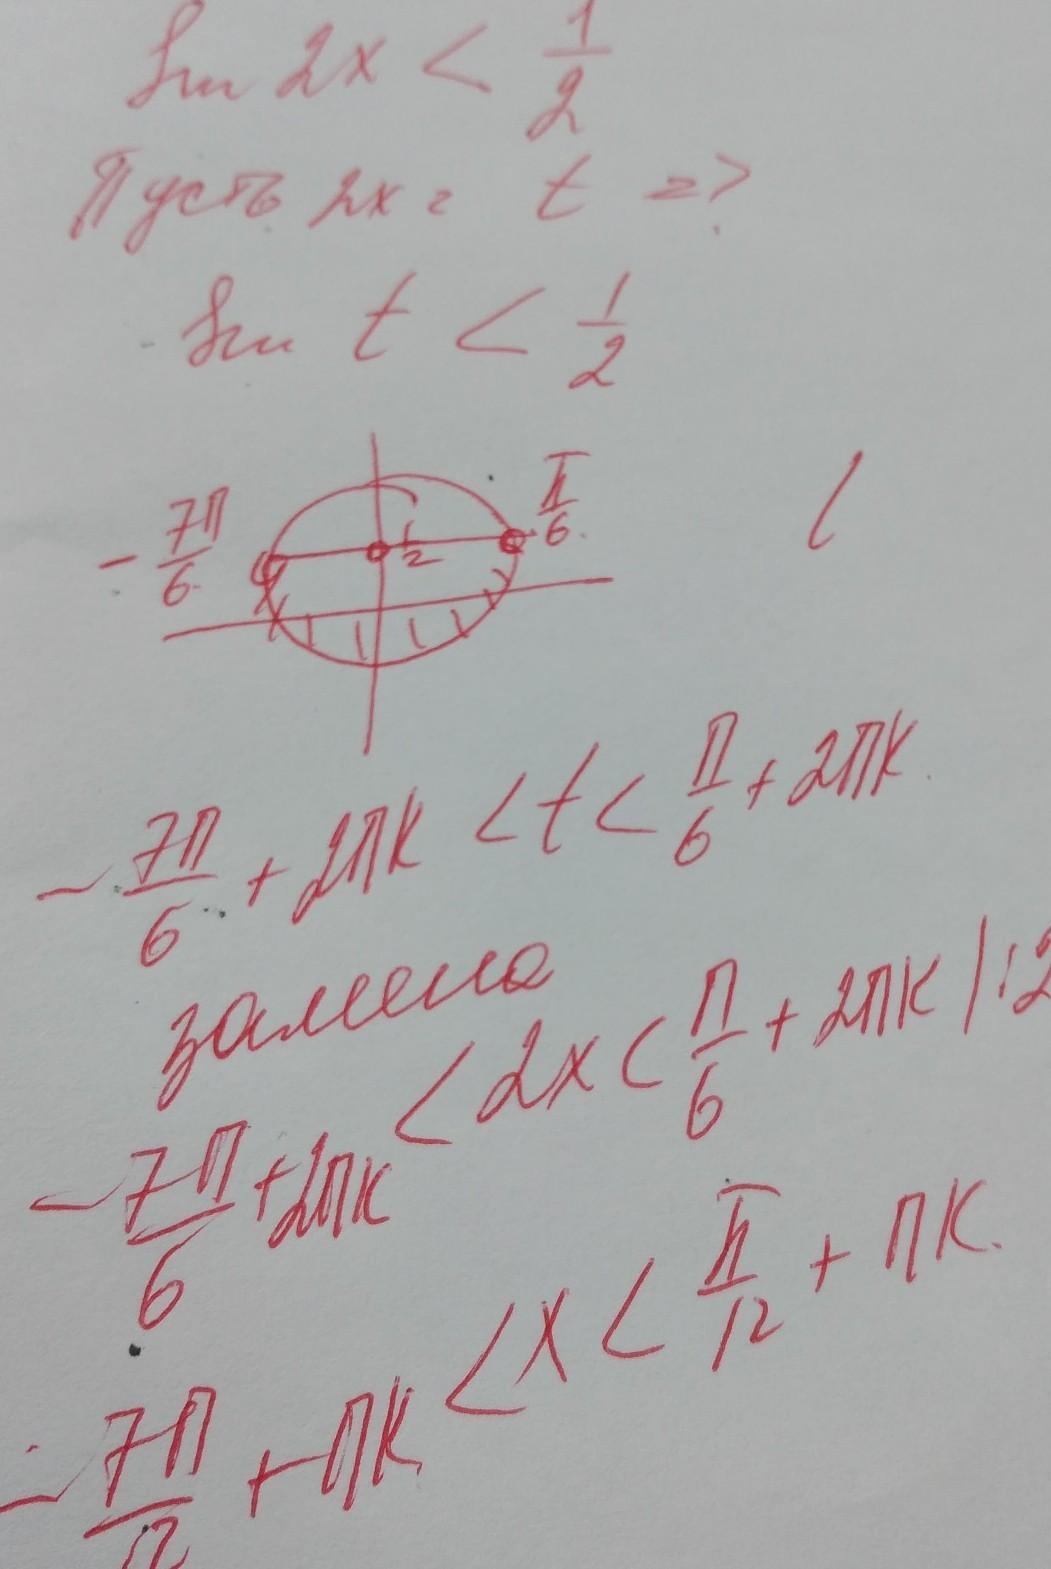 Sin 2x < 1/2
Пусть 2x = t =>
Sin t < 1/2
-7π/6 1/2 π/6
-7π/6 + 2πк < t < π/6 + 2πк
замена
-7π/6 + 2πк < 2x < π/6 + 2πк |:2
-7π/12 + πк < x < π/12 + πк.